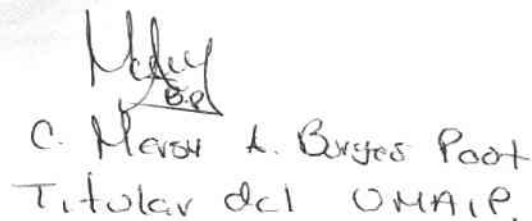 B.P.
C. Mersy A. Burgos Poot
Titular del UMAIP.